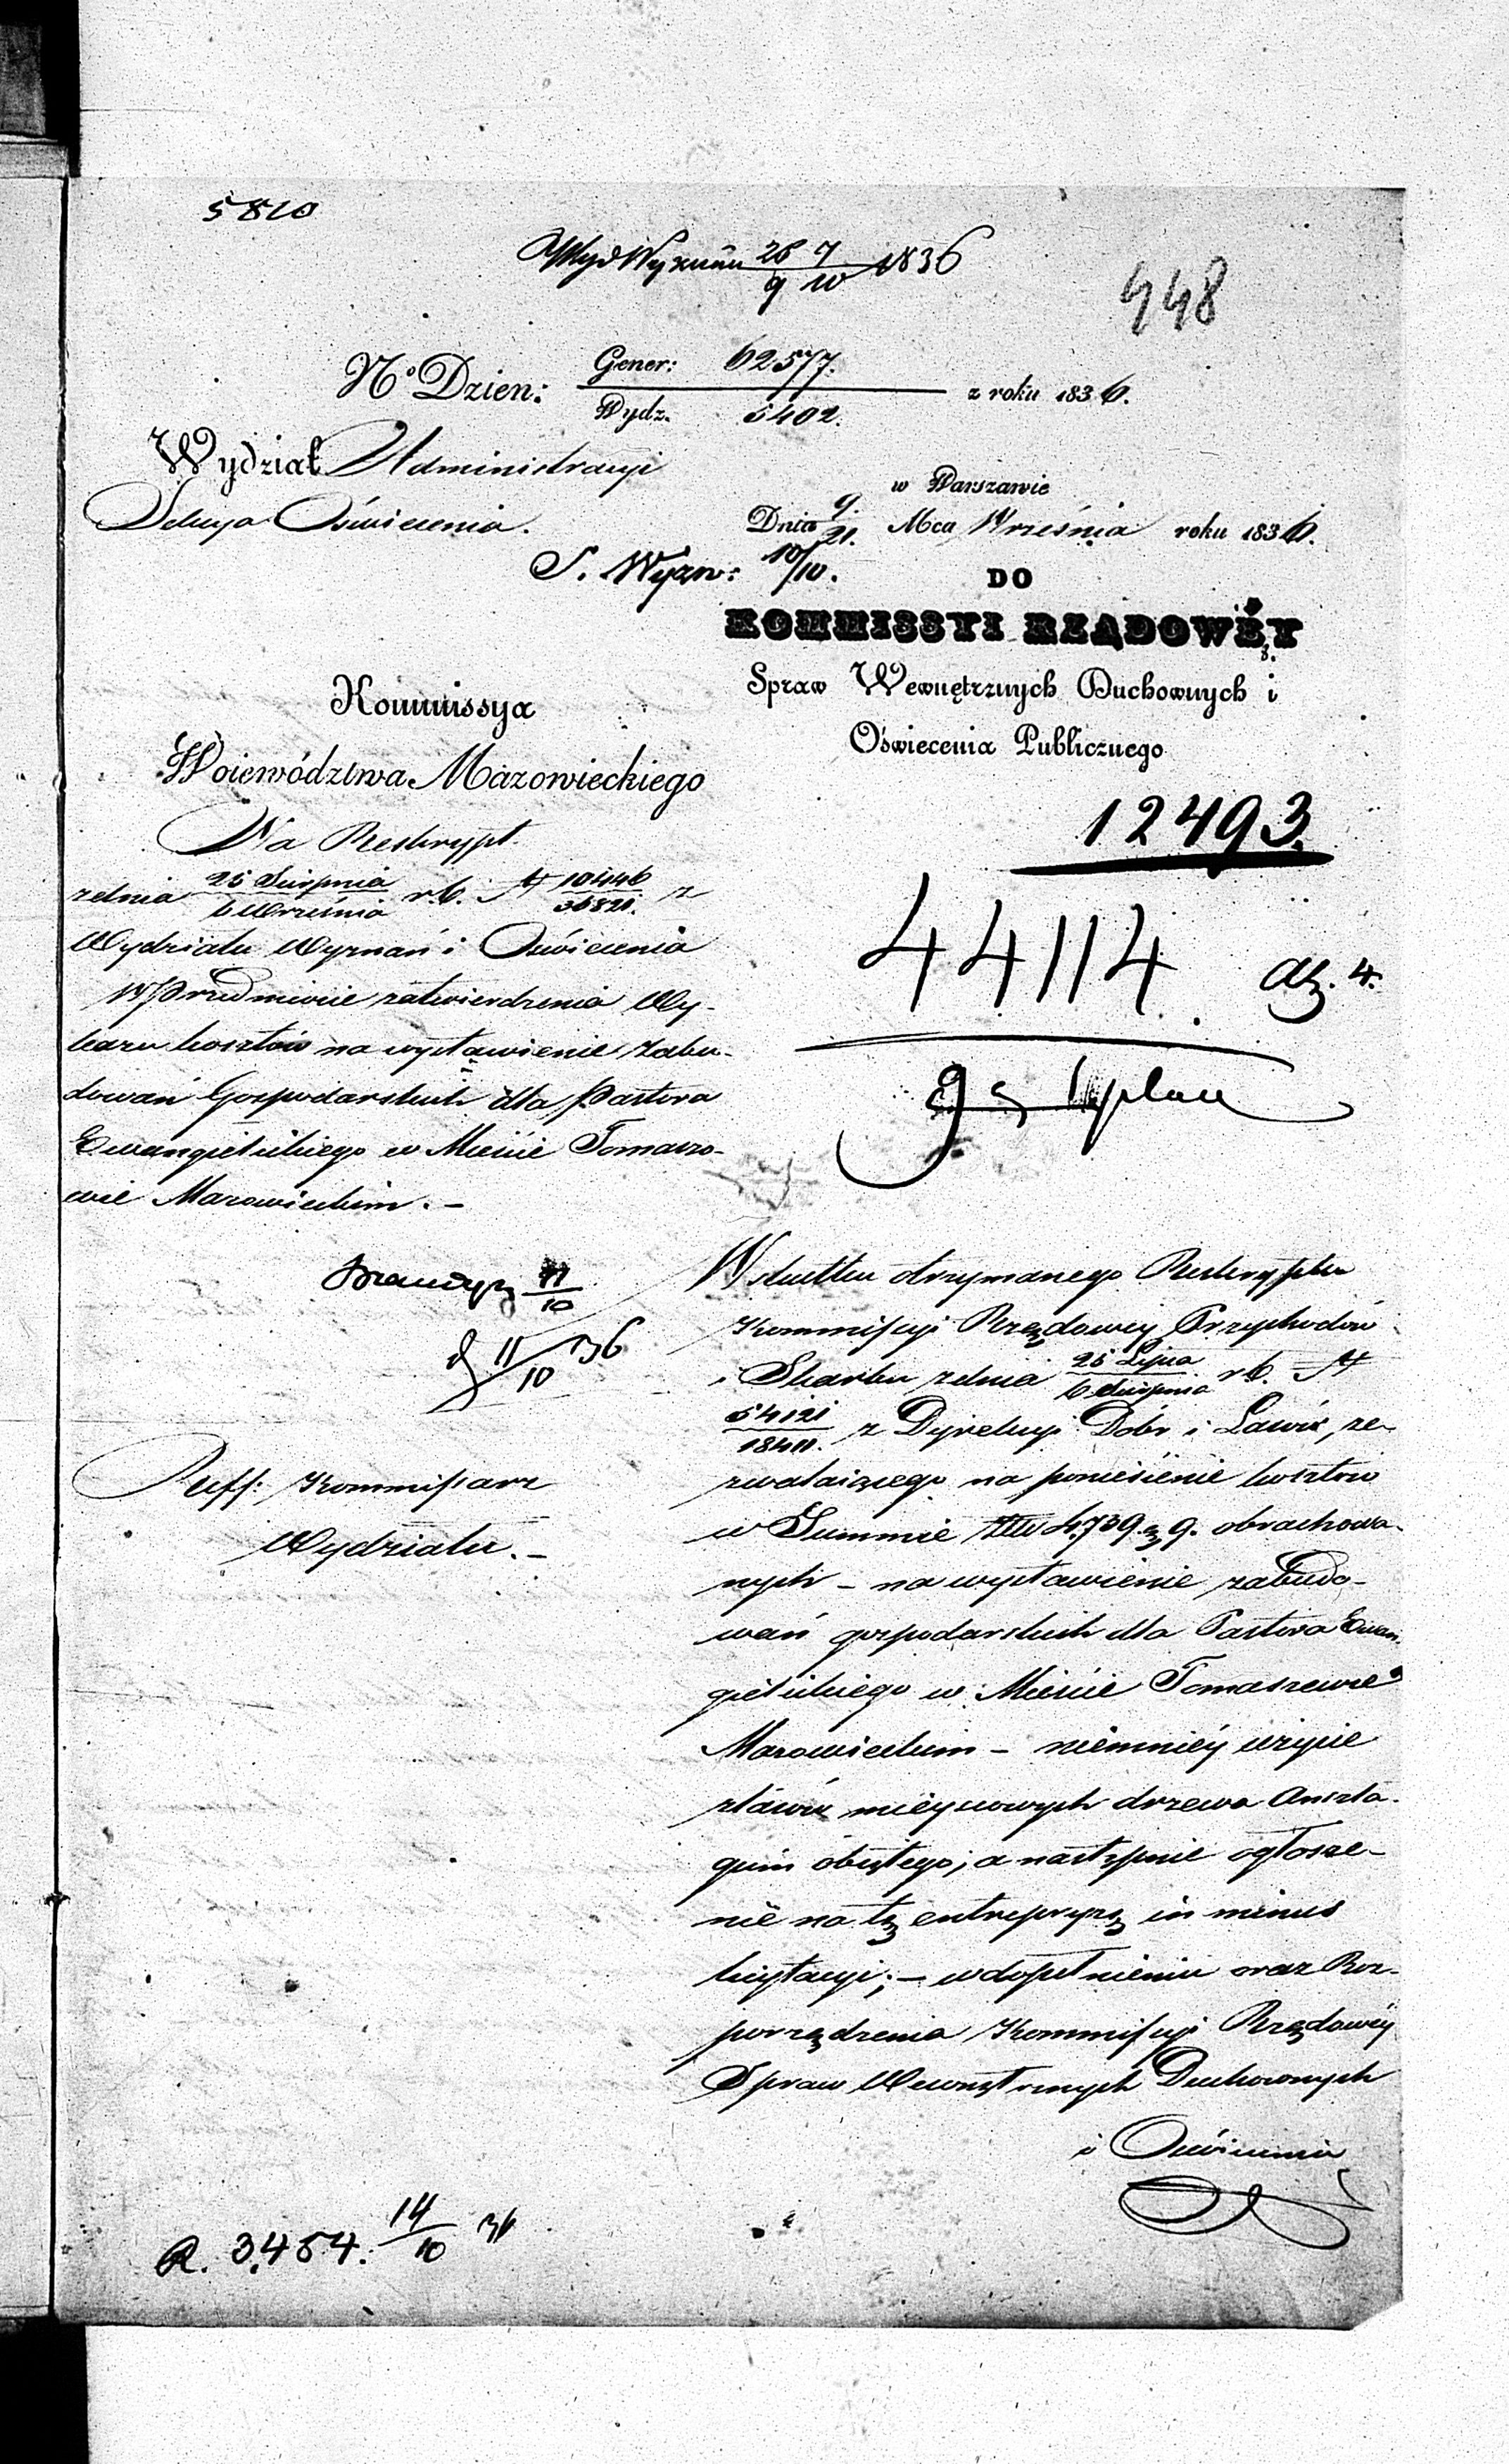 5810
Wyd Wyznań 26/9 7/10 1836
448
No Dzien: Gener: 62577. z roku 1836.
Wydz. 5402.
Wydział Administracyi
Sekcya Oświecenia.
w Warszawie
Dnia 9/21. Mca Września roku 1836.
S. Wyzn: 10/10.
DO
KOMMISSYI RZĄDOWÉY
Spraw Wewnętrznych Duchownych i
Oświecenia Publicznego
Kommissya
Woiewództwa Mazowieckiego
12493.
44114 az. 4.
Na Reskrypt
zdnia 25 Sierpnia / 6 Września r.b. N 10446/36821. z
Wydziału Wyznań i Oświecenia
W Przedmiocie zatwierdzenia Wy-
kazu kosztów na wystawienie zabu-
dowań Gospodarskich dla Pastora
Ewangielickiego w Mieście Tomaszo-
wie Mazowieckim. –
11/10
11/10 836
Reff: Kommissarz
Wydziału. –
W skutku otrzymanego Reskryptu
Kommissyi Rządowey Przychodów
i Skarbu zdnia 25 Lipca / 6 Sierpnia r.b. N
54121/18411. z Dyrekcyi Dóbr i Lasów, ze-
zwalaiącego na poniesienie kosztów
w Summie złł 4,739 g 9. obrachowa-
nych – na wystawienie zabudo-
wań gospodarskich dla Pastora Ewan-
gielickiego w Mieście Tomaszewie
Mazowieckim – niemniéy użycie
zlasów mieyscowych drzewa Anszla-
giem obiętego; a następnie ogłosze-
nie na tę entrepryzę in minus
licytacyi; – wdopełnieniu oraz Roz-
porządzenia Kommissyi Rządowéy
Spraw Wewnętrznych Duchownych
i Oświecenia
R. 3,454. 14/10 36